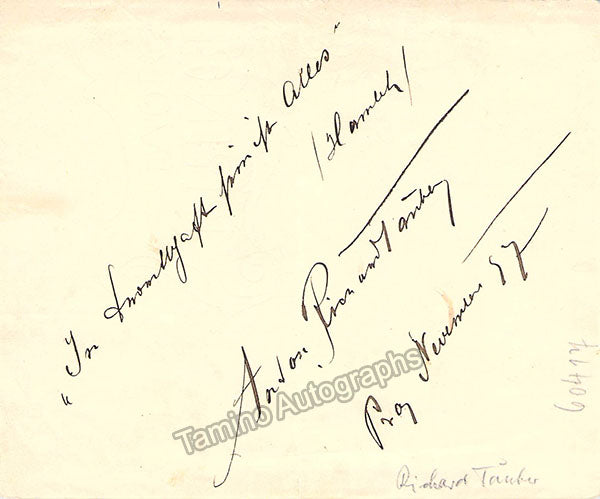 „In Bereitschaft sein ist Alles“
/Hamlet/
Anton Richard Tauber
Prag November 37
Richard Tauber
Tamino Autographs